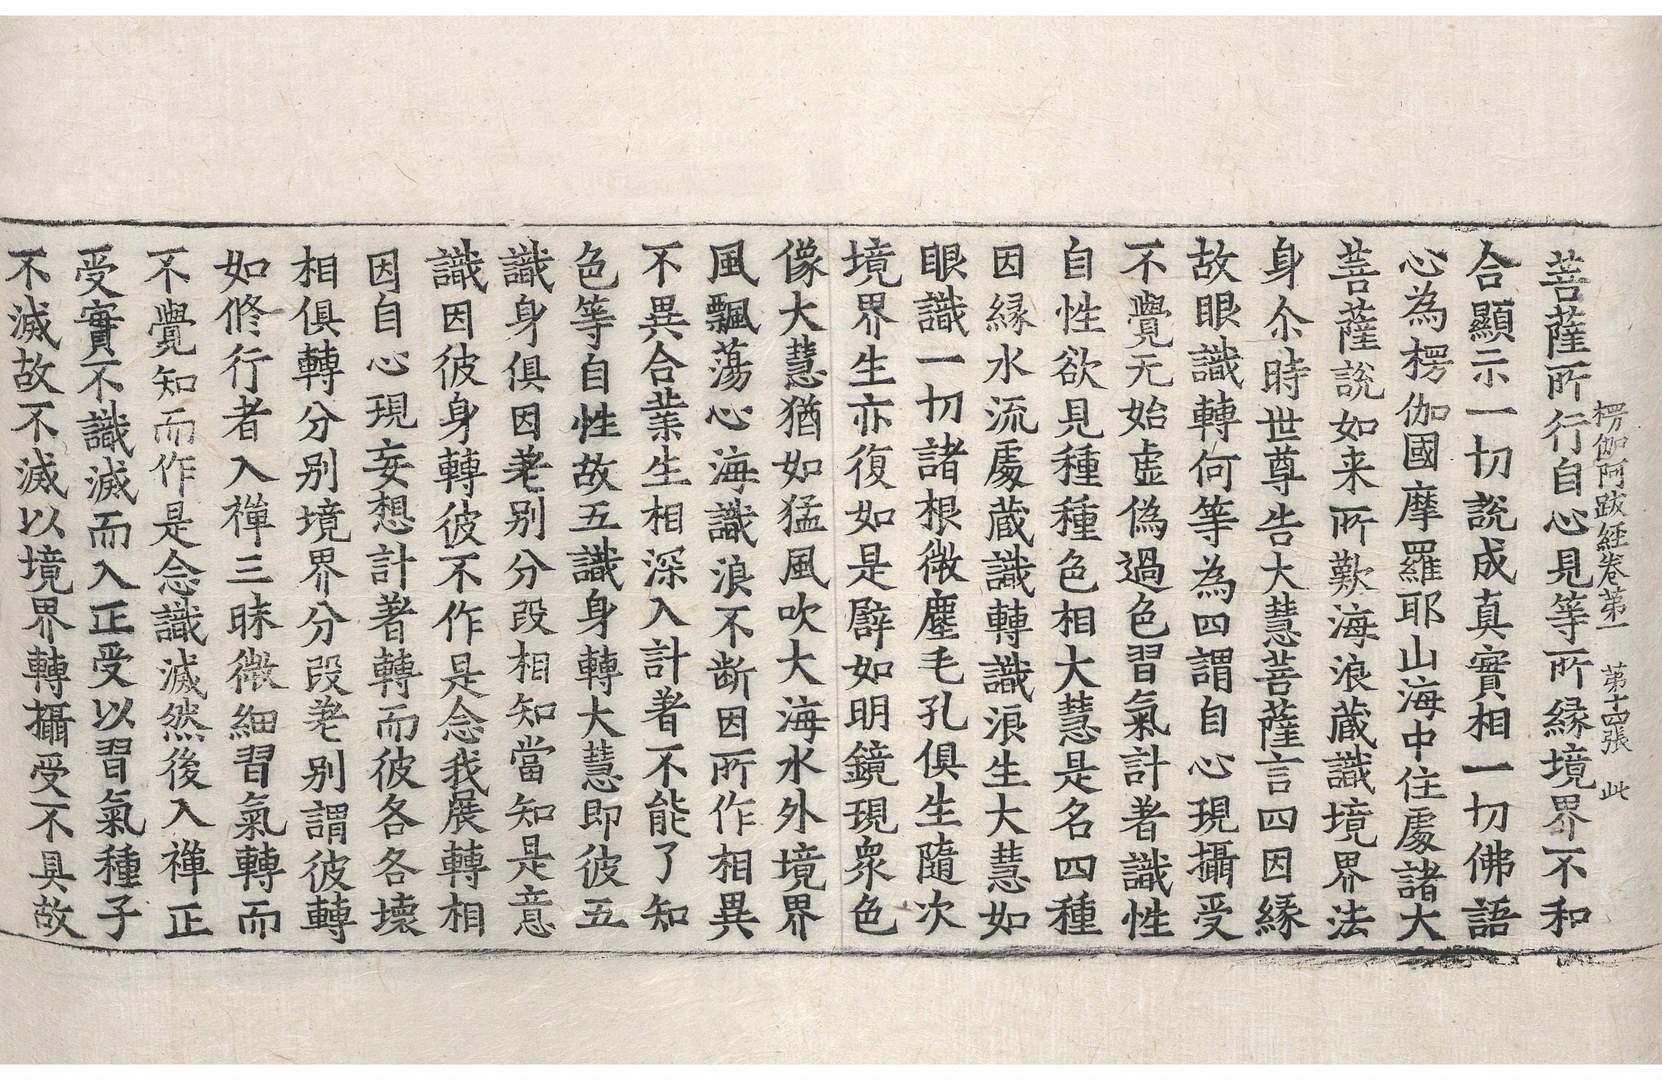 楞伽阿跋經卷第一　第十四張　此
菩薩所行自心見等所緣境界不和
合顯示一切說成真實相一切佛語
心為楞伽國摩羅耶山海中住處諸大
菩薩說如来所歎海浪蔵識境界法
身尒時世尊告大慧菩薩言四因緣
故眼識轉何等為四謂自心現攝受
不覺无始虛偽過色習氣計著識性
自性欲見種種色相大慧是名四種
因緣水流處蔵識轉識浪生大慧如
眼識一切諸根微塵毛孔俱生隨次
境界生亦復如是譬如明鏡現衆色
像大慧猶如猛風吹大海水外境界
風飄蕩心海識浪不断因所作相異
不異合業生相深入計著不能了知
色等自性故五識身轉大慧即彼五
識身俱因差別分段相知當知是意
識因彼身轉彼不作是念我展轉相
因自心現妄想計著轉而彼各各壞
相俱轉分別境界分段差別謂彼轉
如修行者入禪三昧微細習氣轉而
不覺知而作是念識滅然後入禪正
受實不識滅而入正受以習氣種子
不滅故不滅以境界轉攝受不具故